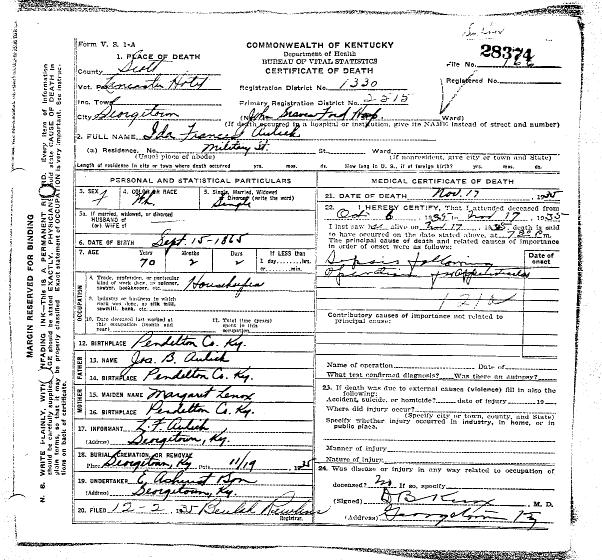 Form V. S. 1-A
COMMONWEALTH OF KENTUCKY
Department of Health
BUREAU OF VITAL STATISTICS
CERTIFICATE OF DEATH
28374
File No.
Registered No.
1. PLACE OF DEATH
County Scott
Vot. Pct. Lancaster Hotel
Inc. Town
City Georgetown
Registration District No. 1330
Primary Registration District No. 2515
(No. John Graves Ford Hosp. Ward)
(If death occurred in a hospital or institution, give its NAME instead of street and number)
2. FULL NAME Ida Frances Aulick
(a) Residence. No. Military St. St. Ward
(Usual place of abode) (If nonresident, give city or town and State)
Length of residence in city or town where death occurred yrs. mos. ds. How long in U. S., if of foreign birth? yrs. mos. ds.
PERSONAL AND STATISTICAL PARTICULARS
3. SEX f
4. COLOR OR RACE Wh
5. Single, Married, Widowed
or Divorced (write the word)
Single
5a. If married, widowed, or divorced
HUSBAND of
(or) WIFE of
6. DATE OF BIRTH Sept. 15-1865
7. AGE Years Months Days If LESS than
70 2 2 1 day, hrs.
or min.
OCCUPATION
8. Trade, profession, or particular
kind of work done, as spinner,
sawyer, bookkeeper, etc.
Housekeeper
9. Industry or business in which
work was done, as silk mill,
sawmill, bank, etc.
10. Date deceased last worked at
this occupation (month and
year)
11. Total time (years)
spent in this
occupation
12. BIRTHPLACE Pendelton Co. Ky.
FATHER
13. NAME Jas. B. Aulick
14. BIRTHPLACE Pendelton Co. Ky.
MOTHER
15. MAIDEN NAME Margart Lenox
16. BIRTHPLACE Pendelton Co. Ky.
17. INFORMANT L. F. Aulick
(Address) Georgetown, Ky.
18. BURIAL, CREMATION OR REMOVAL
Place Georgetown, Ky. Date 11/19 1935
19. UNDERTAKER E. Ashurst & Son
(Address) Georgetown, Ky.
20. FILED 12-2, 1935 Beulah
Registrar.
MEDICAL CERTIFICATE OF DEATH
21. DATE OF DEATH Nov. 17, 1935
22. I HEREBY CERTIFY, That I attended deceased from
Oct 6, 1935 to Nov 17, 1935
I last saw her alive on Nov 17, 1935 death is said
to have occurred on the date stated above, at 7 P m.
The principal cause of death and related causes of importance
in order of onset were as follows:
Date of
onset
Sepsis following
operation for appendicitis
Contributory causes of importance not related to
principal cause:
Name of operation Date of
What test confirmed diagnosis? Was there an autopsy?
23. If death was due to external causes (violence) fill in also the
following:
Accident, suicide, or homicide? date of injury 19
Where did injury occur?
(Specify city or town, county, and State)
Specify whether injury occurred in industry, in home, or in
public place.
Manner of injury
Nature of injury
24. Was disease or injury in any way related to occupation of
deceased? No If so, specify
(Signed) D B Knox, M. D.
(Address) Georgetown Ky
MARGIN RESERVED FOR BINDING